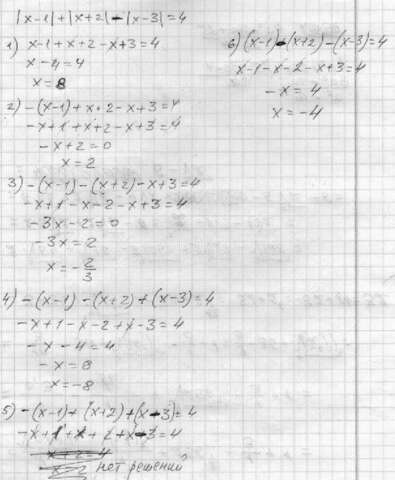 |x-1|+|x+2|-|x-3|=4
1) x-1+x+2-x+3=4
x-4=4
x=8
2) -(x-1)+x+2-x+3=4
-x+1+x+2-x+3=4
-x+2=0
x=2
3) -(x-1)-(x+2)-x+3=4
-x+1-x-2-x+3=4
-3x-2=0
-3x=2
x=-2/3
4) -(x-1)-(x+2)+(x-3)=4
-x+1-x-2+x-3=4
-x-4=4
-x=8
x=-8
5) -(x-1)+(x+2)+(x-3)=4
-x+1+x+2+x-3=4
x+2=4
нет решений
6) (x-1)-(x+2)-(x-3)=4
x-1-x-2-x+3=4
-x=4
x=-4